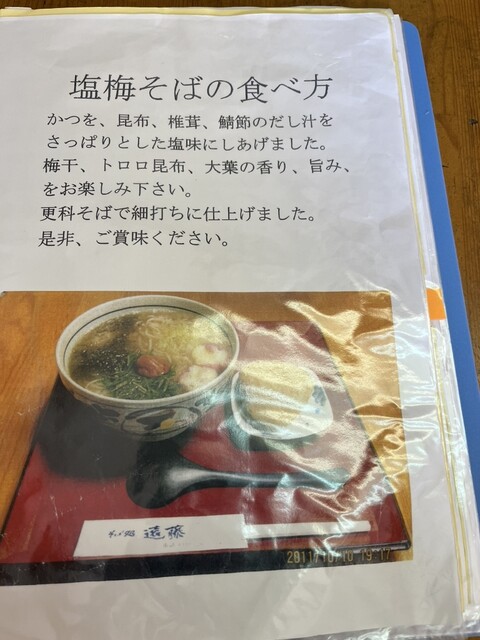 塩梅そばの食べ方
かつを、昆布、椎茸、鯖節のだし汁を
さっぱりとした塩味にしあげました。
梅干、トロロ昆布、大葉の香り、旨み、
をお楽しみ下さい。
更科そばで細打ちに仕上げました。
是非、ご賞味ください。
遠藤
2011/10/10 19:17